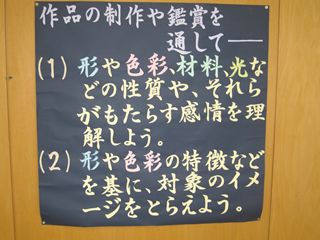 作品の制作や鑑賞を
通して――
(1) 形や色彩、材料、光な
どの性質や、それら
がもたらす感情を理
解しよう。
(2) 形や色彩の特徴など
を基に、対象のイメ
ージをとらえよう。